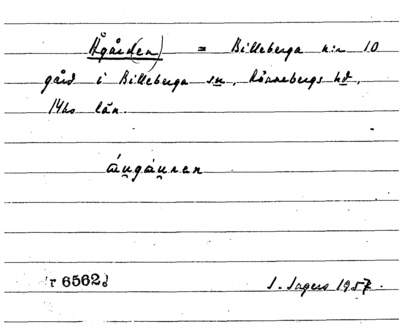 Ågård(en) = Billeberga n:r 10
gård i Billeberga sn, Rönnebergs hd,
Mhs län.
áu̯gáu̯ren
r 6562
J. Sagers 1957.